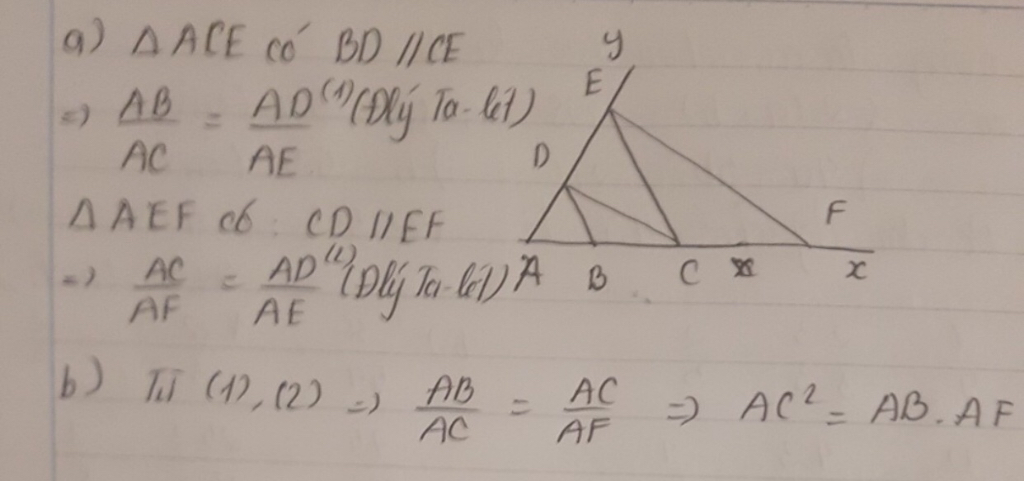 a) Δ ACE có BD // CE
=) AB/AC = AD/AE (1) (Đlý Ta-let)
Δ AEF có: CD // EF
=) AC/AF = AD/AE (2) (Đlý Ta-lét)
y
E
D
F
A B C x
b) Từ (1), (2) =) AB/AC = AC/AF =) AC² = AB. AF